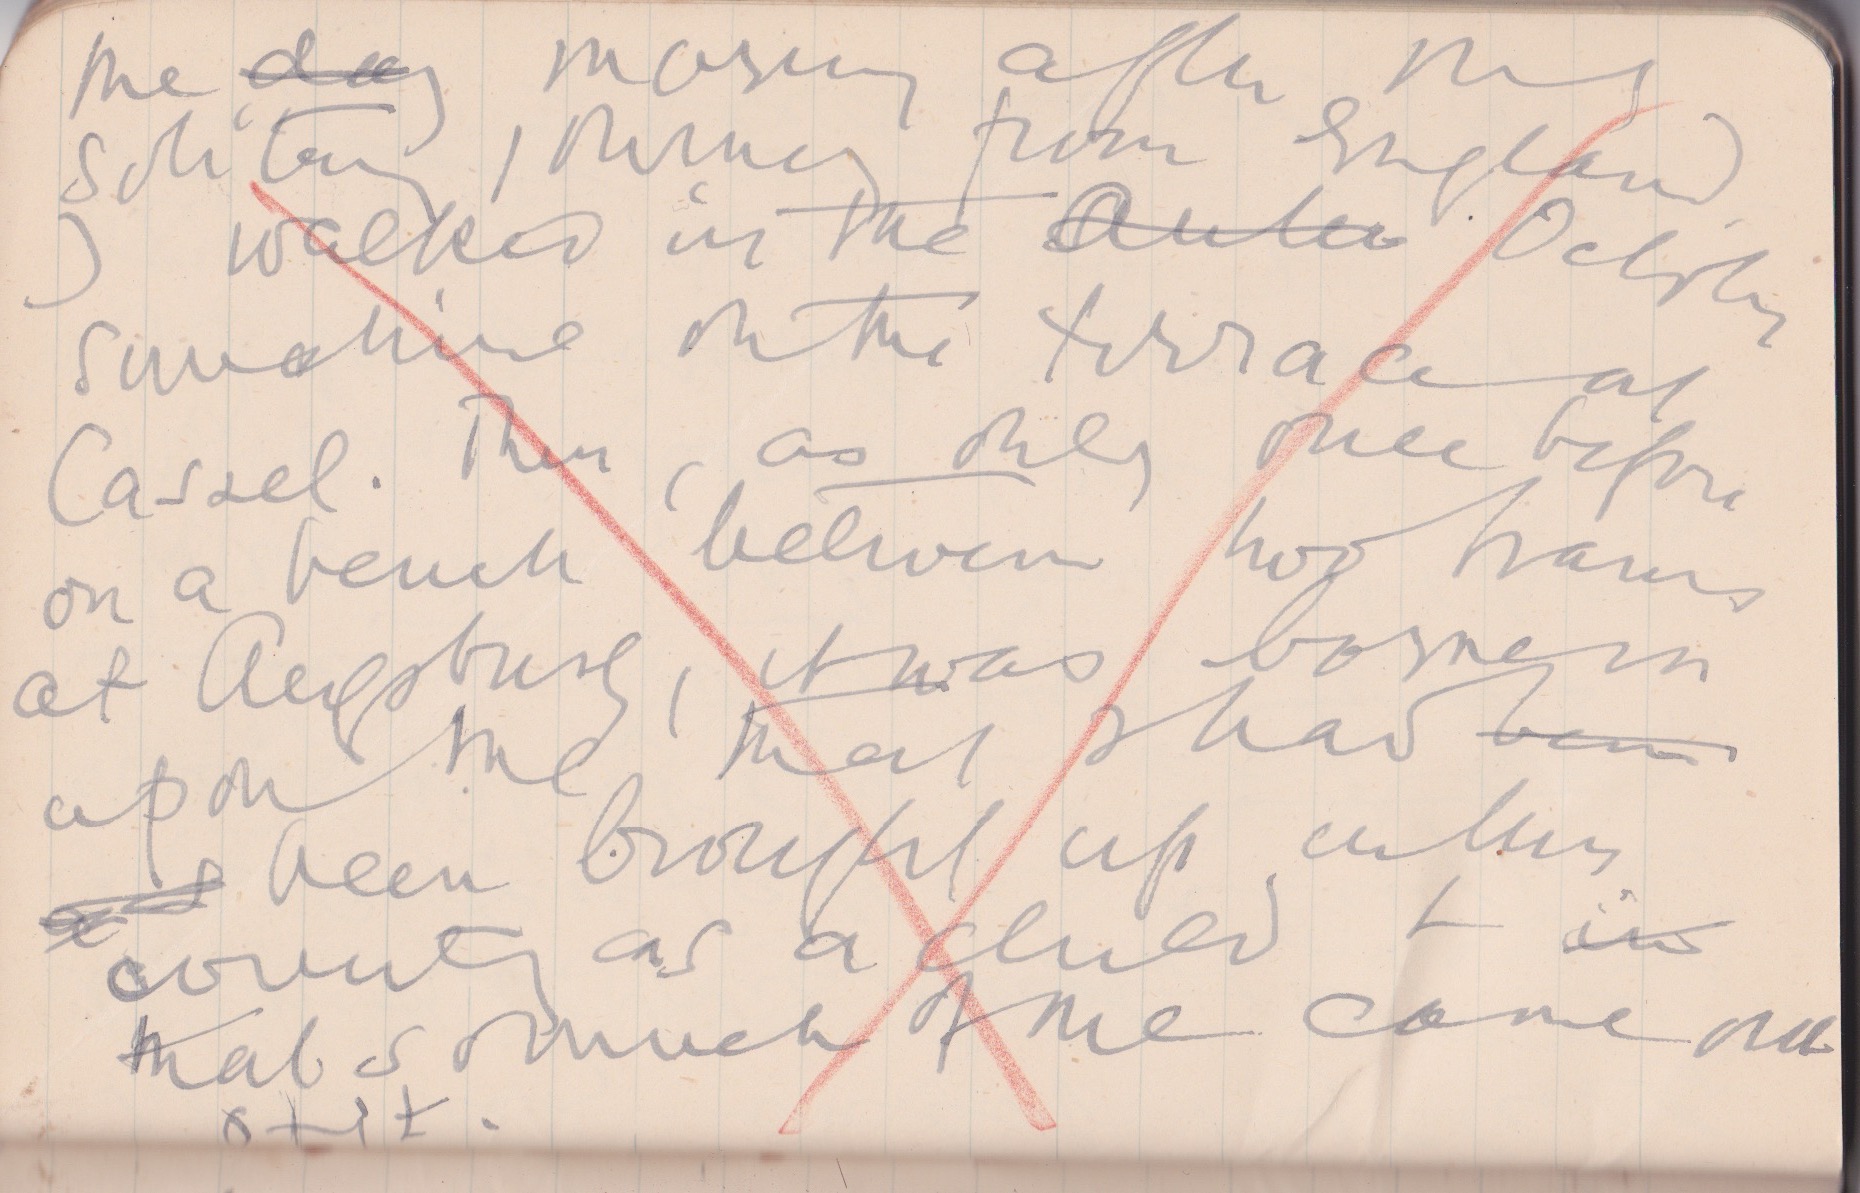 the day morning after my
solitary journey from England
I walked in the Autu October
sunshine on the terrace at
Cassel. Then, as only once before
on a bench between two trains
at Augsburg, it was borne in
upon me that I had been
been brought up in this
country as a child & in
that so much of me came out
of it.